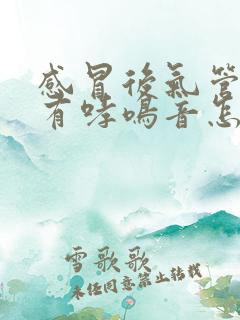 感冒後氣管
有哮鳴音怎
雪歌歌
未经同意禁止转载